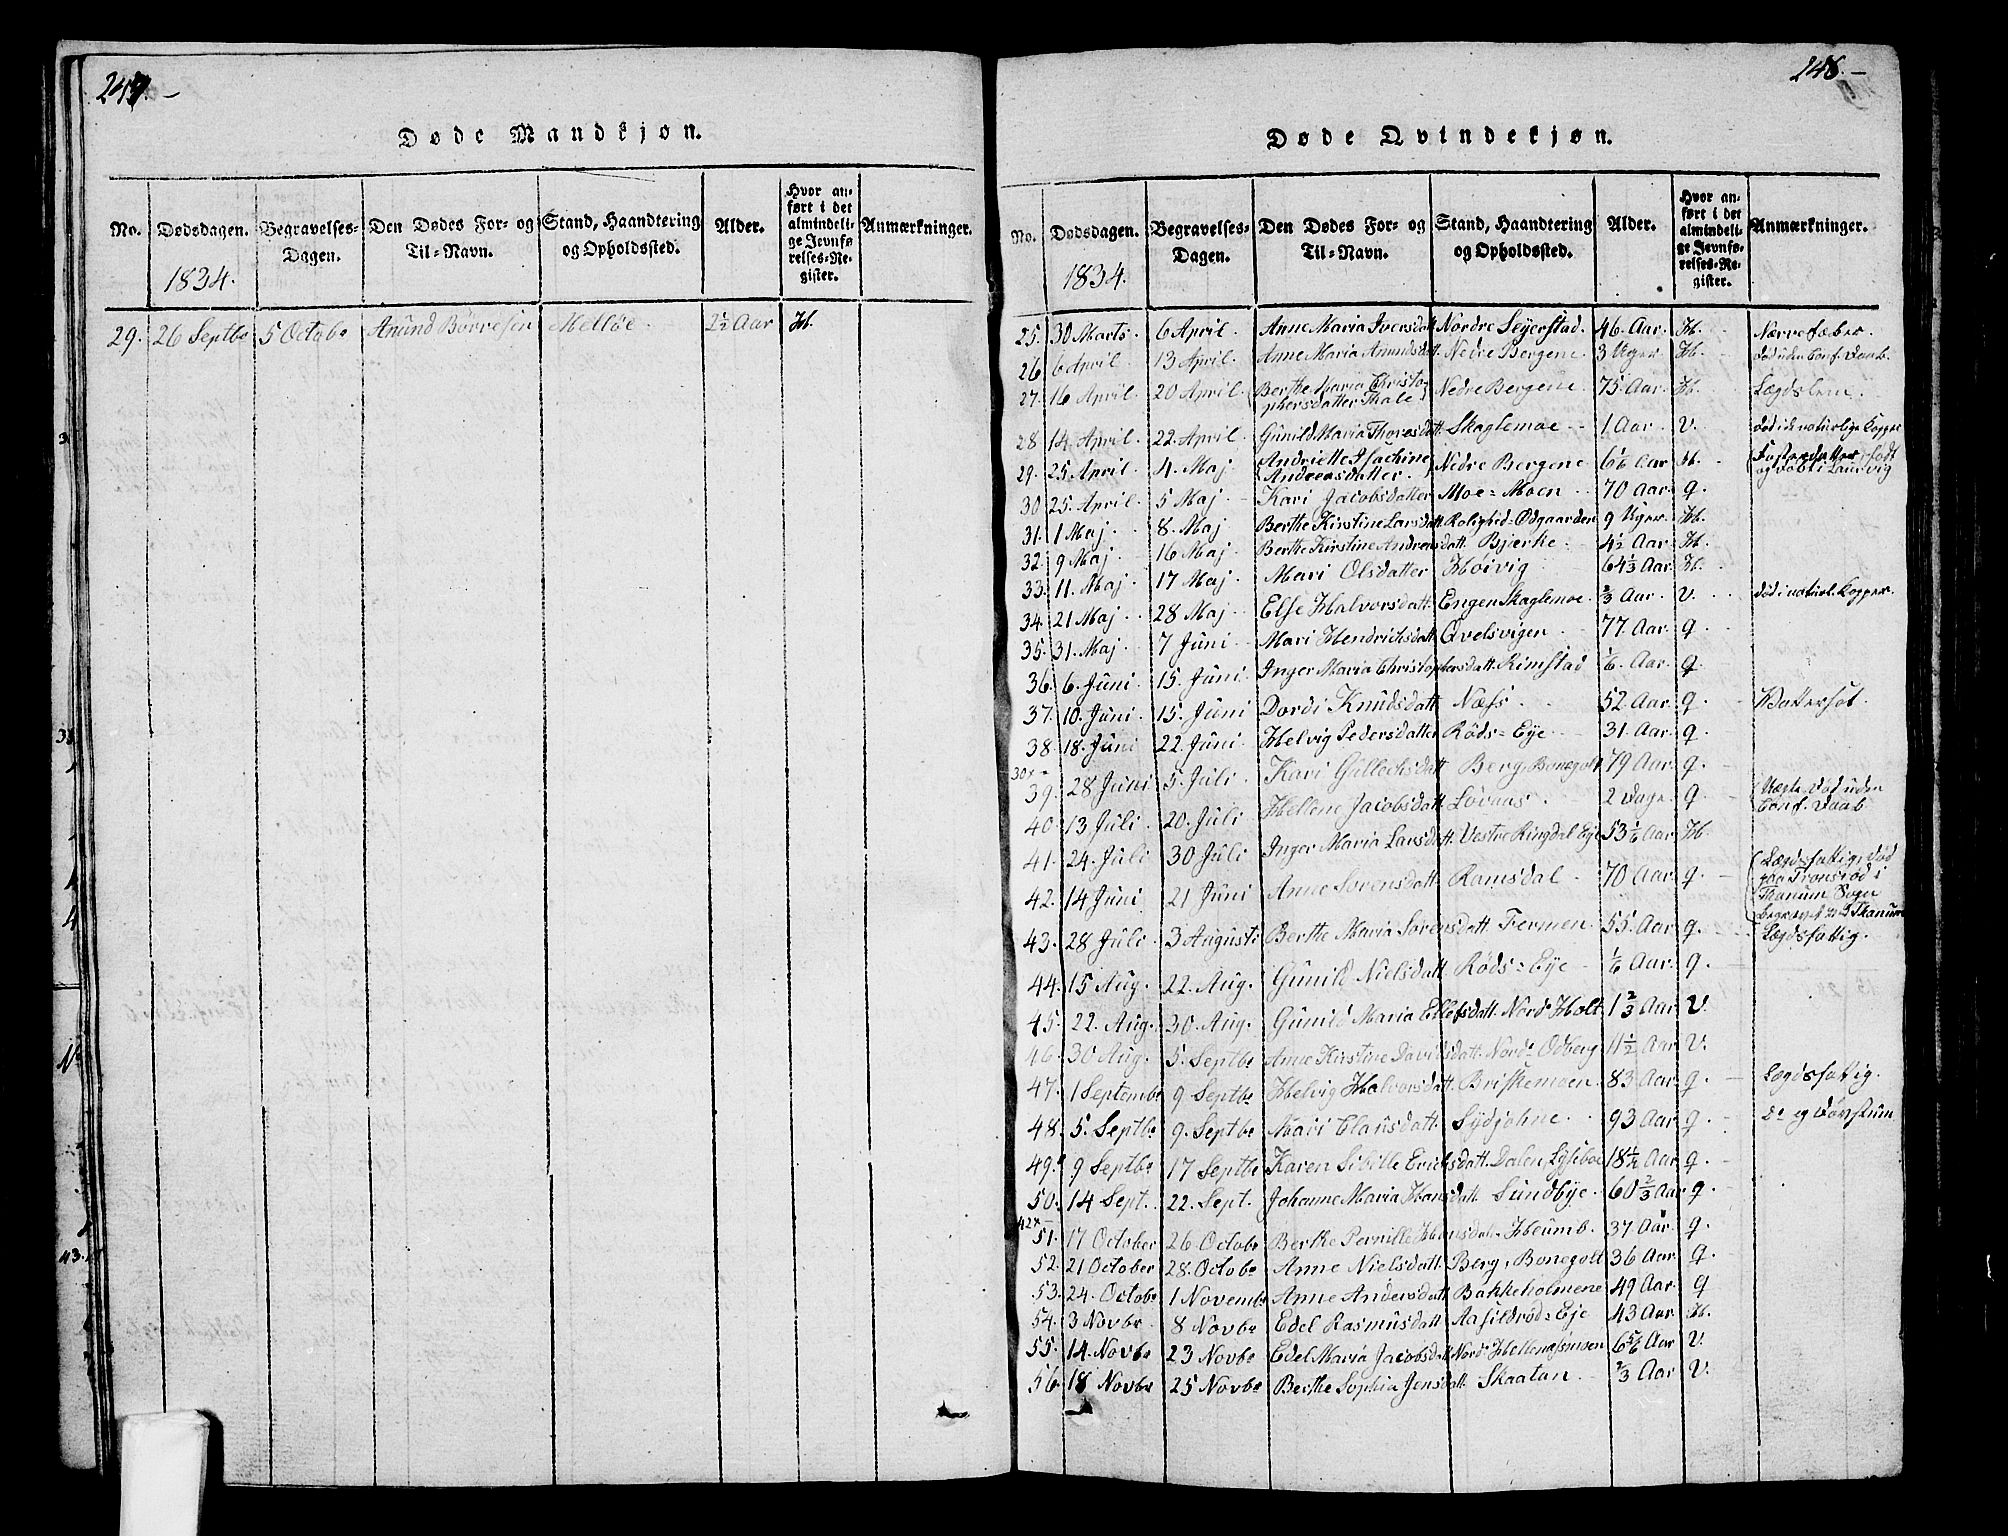 247. —
Døde Mandkjøn.
No. Dødsdagen. Begravelses-Dagen. Den Dødes For- og Til-Navn. Stand, Haandtering og Opholdssted. Alder. Hvor anført i det almindelige Jevnførelses-Register. Anmærkninger.
1834.
29. 26 Septbr 5 Octobr Anund Börresen Mellöe. 2½ Aar H.
248. —
Døde Qvindekjøn.
No. Dødsdagen. Begravelses-Dagen. Den Dødes For- og Til-Navn. Stand, Haandtering og Opholdssted. Alder. Hvor anført i det almindelige Jevnførelses-Register. Anmærkninger.
1834.
25. 30 Marts 6 April. Anne Maria Iversdatt. Nordre Seyerstad. 46 Aar. H. Nervefeber.
26 6 April 13 April. Anne Maria Amundsdatt. Nedre Bergene. 3 Uger. H. Død uden Conf. Daab.
27. 16 April. 20 April. Berthe Maria Christophersdatter Thale Nedre Bergene. 75 Aar. H. Lægdslem.
28 14 April. 22 April. Gunild Maria Thoresdatt. Skaglemoe 1 Aar. V. død i de naturlige Kopper
29. 25 April. 4 Maj. Andriette Isachine Andreasdatter. Nedre Bergene 6⅙ Aar H. Fosterdatter, født og døbt i Laurvig
30 25. April. 5 Maj Kari Jacobsdatter Moe=Moen 70 Aar. q.
31. 1 Maj 8. Maj Berthe Kirstine Larsdatt. Rolighed=Odgaarden 9 Uger. H.
32. 9 Maj 16 Maj. Berthe Kirstine Andreasdatt. Bjerke 4½ Aar. H.
33. 11. Maj 17 Maj. Mari Olsdatter Høivig 64⅓ Aar. H.
34. 21 Maj 28 Maj. Else Halvorsdatt. Engen Skaglemoe. ⅔ Aar. V. død i naturl. Kopper.
35. 31. Maj 7 Juni Mari Hendrichsdatt. Qvelsvigen 77 Aar. q.
36. 6. Juni 15. Juni. Inger Maria Christophersdatt. Rimstad ⅙. Aar. q.
37. 10. Juni. 15. Juni Dordi Knudsdatt. Næss 52 Aar. q. Vattersot.
38. 18. Juni 22 Juni. Helvig Pedersdatter Røds=Eye 31. Aar. q.
39. 28 Juni 5. Juli. Kari Gullichsdatt Berg, Bonegolt 79 Aar. q.
40 13 Juli. 20. Juli Hellene Jacobsdatt. Lövaas. 2 Dage. q. Uægte. død uden Conf. Daab
41. 24. Juli 30 Juli Inger Maria Larsdatt. Vestre Ringdal Eje 53⅙ Aar. H.
42. 14 Juni 21 Juni Anne Sörensdatt. Ramsdal. 70 Aar. q. Lægdsfattig, død paa Tronsrød i Thanum Sogn begravet ved Thanum
43. 28 Juli. 3 Augusti Berthe Maria Sörensdatt. Fermen. 55. Aar. q. Lægdsfattig.
44. 15 Aug. 22. Aug. Gunild Nielsdatt. Røds=Eje ⅙ Aar. q.
45. 22. Aug. 30 Aug. Gunild Maria Ellefsdatt. Nord. Holt 1⅔ Aar. V.
46. 30 Aug. 5. Septbr Anne Kirstine Davidsdatt. Nord. Odberg 11½ Aar V.
47. 1 Septembr 9 Septbr Helvig Halvorsdatt. Briskemoen. 83 Aar. q. Lægdsfattig.
48. 5. Septbr 9. Septbr Mari Clausdatt. Sydjohne 93 Aar. q. Do og Døvstum
49. 9 Septbr 17 Septbr Karen Sibille Erichsdatt. Dalen Lysiboe 18½ Aar q.
50. 14 Sept. 22. Sept. Johanne Maria Hansdatt. Sundbye. 60⅔ Aar q.
51. 17 October 26 Octobr Berthe Pernille Hansdat. Heumb. 37 Aar. q.
52. 21 October 28. Octobr Anne Nielsdatt. Berg, Bonegolt 36 Aar. q.
53. 24. Octobr 1 Novembr Anne Andersdatt Bakkeholmene 49 Aar. q
54. 3 Novbr. 8 Novbr Edel Rasmusdatt. Aasildröd=Eje 43 Aar. H.
55. 14. Novbr 23 Novbr Edel Maria Jacobsdatt. Nord. Hellenæsmoen 6⅚ Aar V.
56. 18 Novbr 25 Novbr Berthe Sophia Jensdatt. Skaatan ⅔ Aar V.